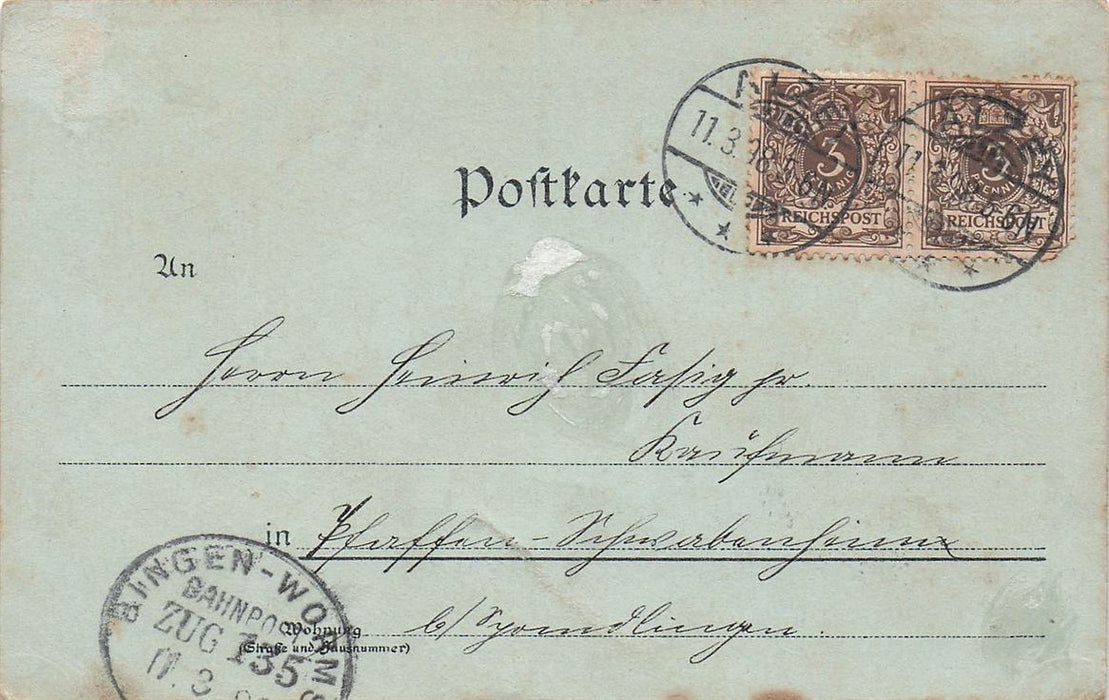 Postkarte
ALZEY
11.3.98.5-6N
3
PFENNIG
REICHSPOST
ALZEY
5-6N
3
PFENNIG
REICHSPOST
An
Herrn Heinrich Fassig jr.
Kaufmann
in Pfaffen-Schwabenheim
b/Sprendlingen.
Wohnung
(Straße und Hausnummer)
BINGEN-WORMS
BAHNPOST
ZUG 135
11.3